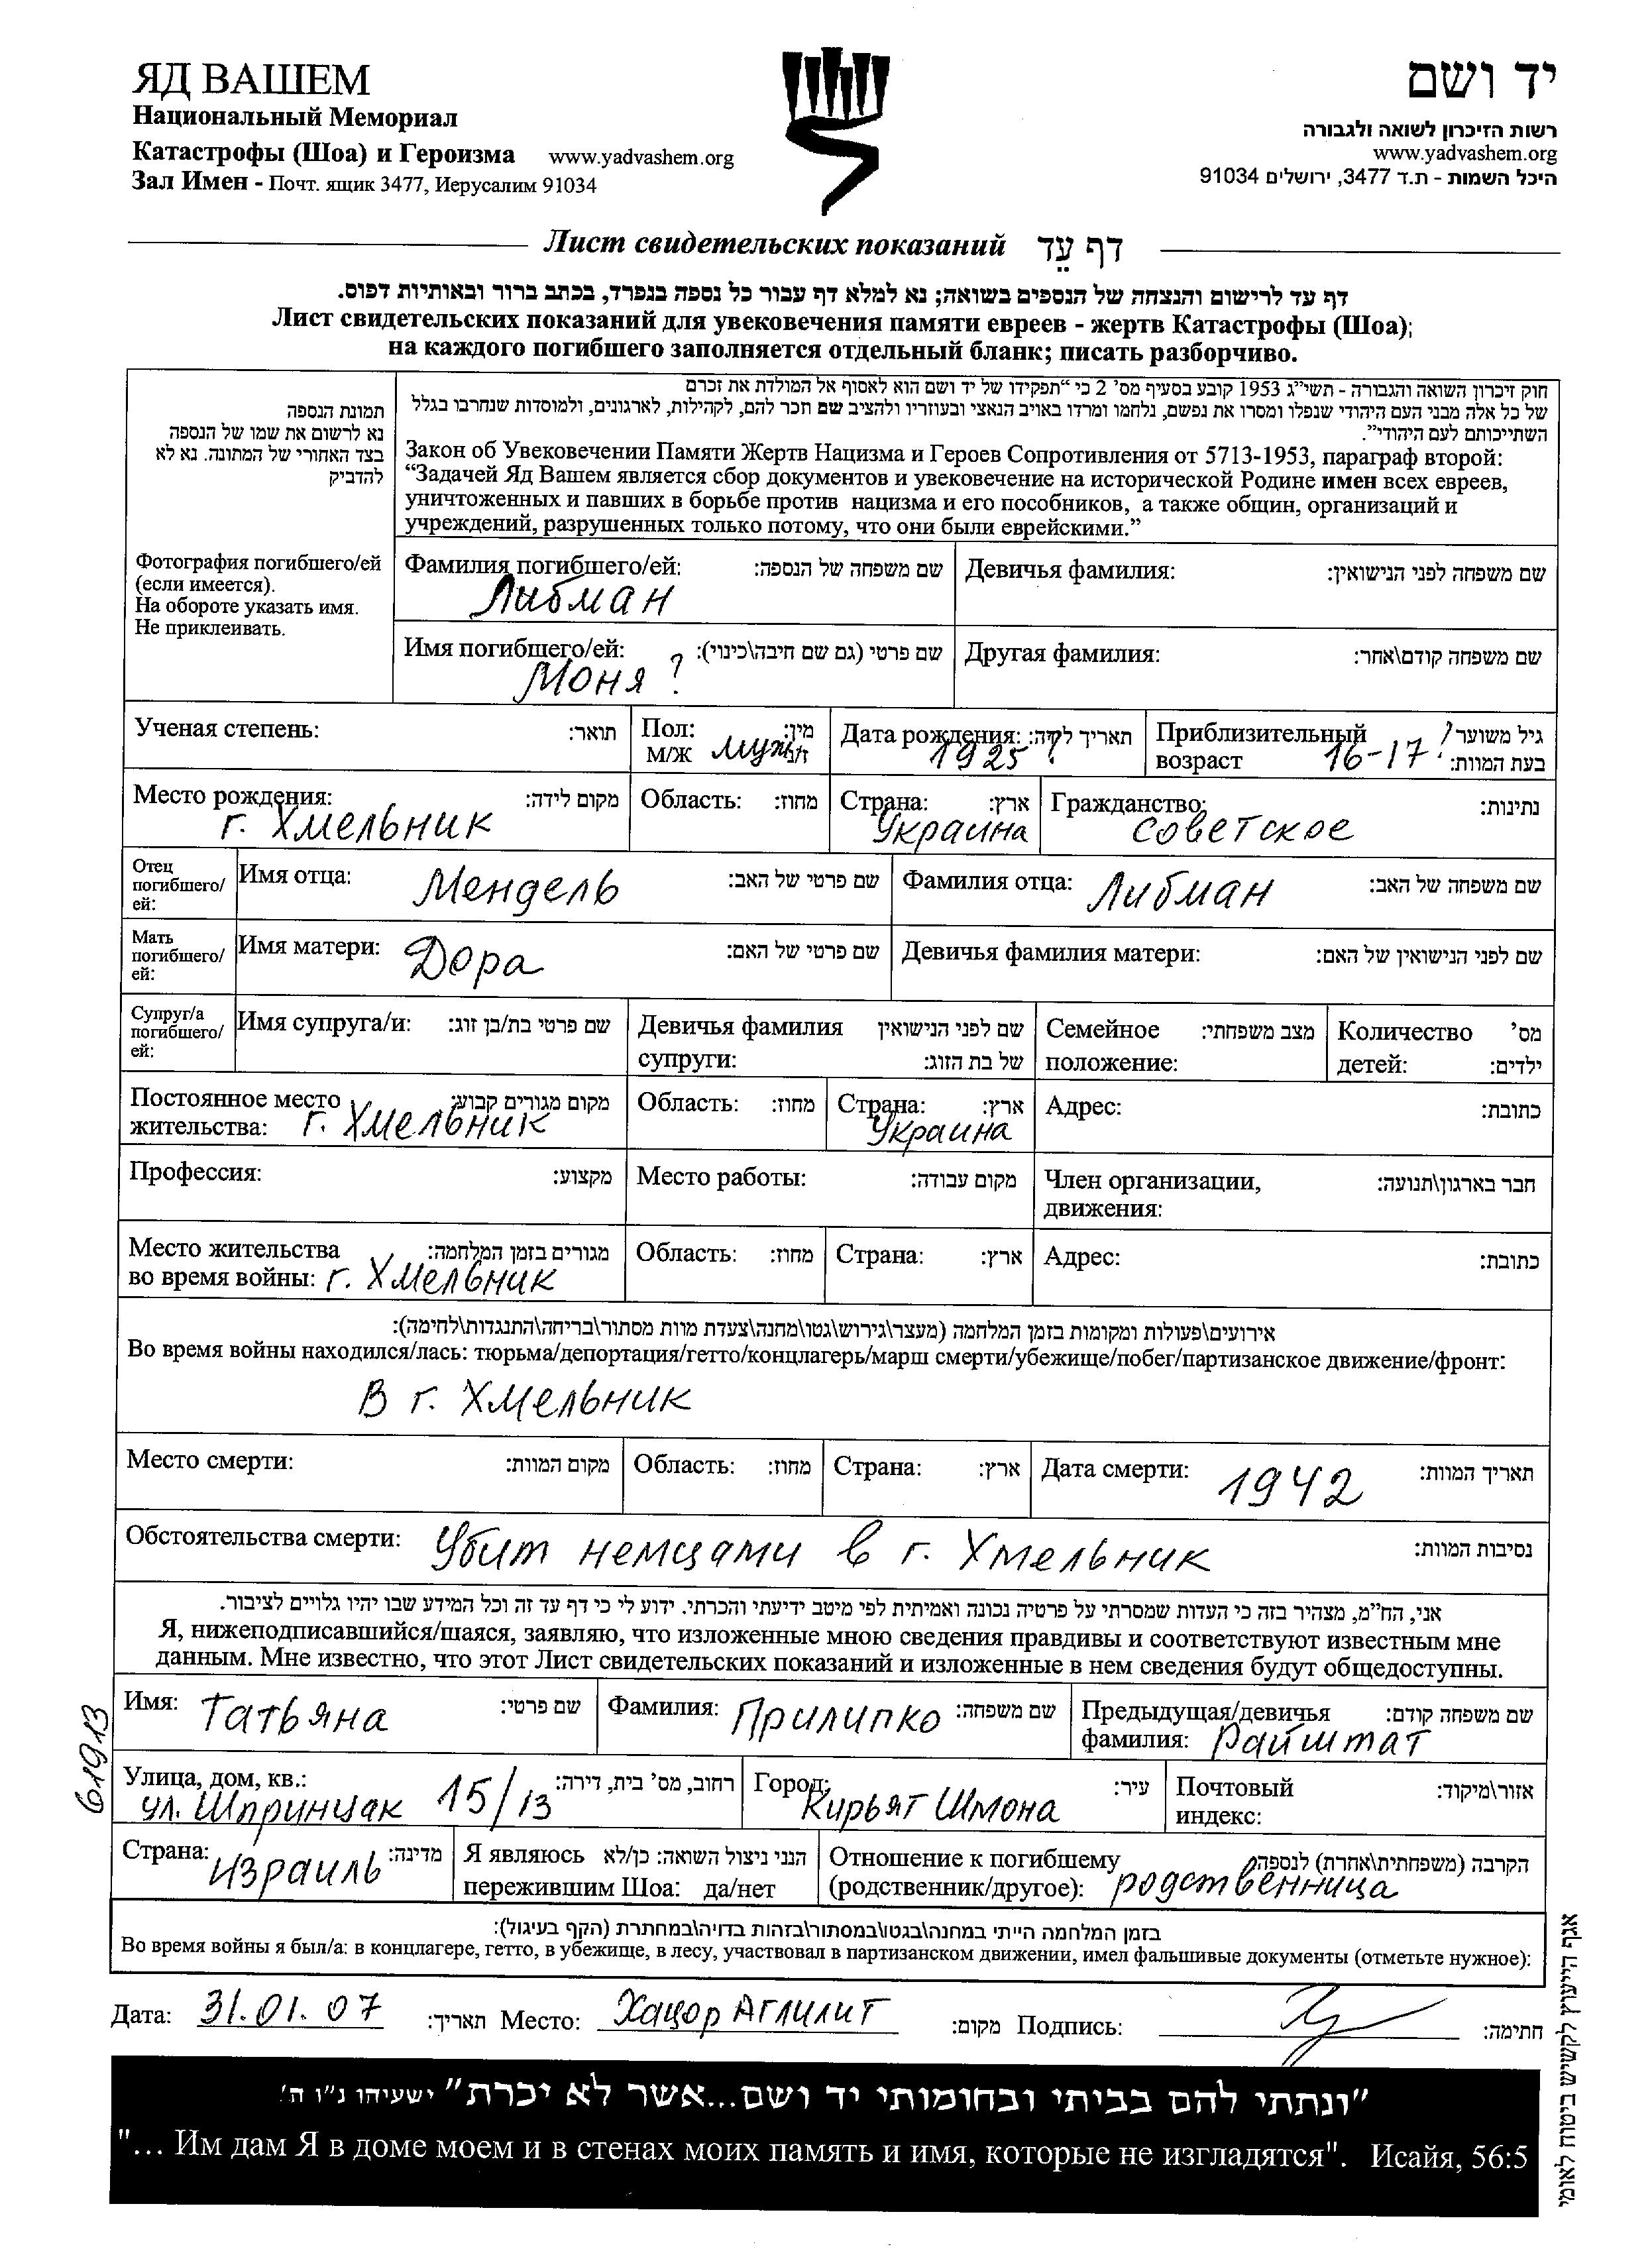 ЯД ВАШЕМ
Национальный Мемориал
Катастрофы (Шоа) и Героизма www.yadvashem.org
Зал Имен - Почт. ящик 3477, Иерусалим 91034
יד ושם
רשות הזיכרון לשואה ולגבורה
www.yadvashem.org
היכל השמות - ת.ד 3477, ירושלים 91034
Лист свидетельских показаний דף עֵד
דף עד לרישום והנצחה של הנספים בשואה; נא למלא דף עבור כל נספה בנפרד, בכתב ברור ובאותיות דפוס.
Лист свидетельских показаний для увековечения памяти евреев - жертв Катастрофы (Шоа);
на каждого погибшего заполняется отдельный бланк; писать разборчиво.
תמונת הנספה
נא לרשום את שמו של הנספה
בצד האחורי של המתונה. נא לא
להדביק
Фотография погибшего/ей
(если имеется).
На обороте указать имя.
Не приклеивать.
חוק זיכרון השואה והגבורה - תשי״ג 1953 קובע בסעיף מס׳ 2 כי “תפקידו של יד ושם הוא לאסוף אל המולדת את זכרם
של כל אלה מבני העם היהודי שנפלו ומסרו את נפשם, נלחמו ומרדו באויב הנאצי ובעוזריו ולהציב שם וזכר להם, לקהילות, לארגונים, ולמוסדות שנחרבו בגלל
השתייכותם לעם היהודי”.
Закон об Увековечении Памяти Жертв Нацизма и Героев Сопротивления от 5713-1953, параграф второй:
“Задачей Яд Вашем является сбор документов и увековечение на исторической Родине имен всех евреев,
уничтоженных и павших в борьбе против нацизма и его пособников, а также общин, организаций и
учреждений, разрушенных только потому, что они были еврейскими.”
Фамилия погибшего/ей: שם משפחה של הנספה:
Либман
Девичья фамилия: שם משפחה לפני הנישואין:
Имя погибшего/ей: שם פרטי (גם שם חיבה\כינוי):
Моня ?
Другая фамилия: שם משפחה קודם\אחר:
Ученая степень: תואר:
Пол: מין:
м/ж муж ז/נ
Дата рождения: תאריך לידה:
1925 ?
Приблизительный גיל משוער
возраст 16-17 ? בעת המוות:
Место рождения: מקום לידה:
г. Хмельник
Область: מחוז:
Страна: ארץ:
Украина
Гражданство: נתינות:
советское
Отец
погибшего/
ей:
Имя отца: Мендель שם פרטי של האב:
Фамилия отца: Либман שם משפחה של האב:
Мать
погибшего/
ей:
Имя матери: Дора שם פרטי של האם:
Девичья фамилия матери: שם לפני הנישואין של האם:
Супруг/а
погибшего/
ей:
Имя супруга/и: שם פרטי בת/בן זוג:
Девичья фамилия שם לפני הנישואין
супруги: של בת הזוג:
Семейное מצב משפחתי:
положение:
Количество מס׳
детей: ילדים:
Постоянное место מקום מגורים קבוע:
жительства: г. Хмельник
Область: מחוז:
Страна: ארץ:
Украина
Адрес: כתובת:
Профессия: מקצוע:
Место работы: מקום עבודה:
Член организации, חבר בארגון\תנועה:
движения:
Место жительства מגורים בזמן המלחמה:
во время войны: г. Хмельник
Область: מחוז:
Страна: ארץ:
Адрес: כתובת:
אירועים\פעולות ומקומות בזמן המלחמה (מעצר\גירוש\גטו\מחנה\צעדת מוות מסתור\בריחה\התנגדות\לחימה):
Во время войны находился/лась: тюрьма/депортация/гетто/концлагерь/марш смерти/убежище/побег/партизанское движение/фронт:
В г. Хмельник
Место смерти: מקום המוות:
Область: מחוז:
Страна: ארץ:
Дата смерти: 1942 תאריך המוות:
Обстоятельства смерти: Убит немцами в г. Хмельник נסיבות המוות:
אני, הח״מ, מצהיר בזה כי העדות שמסרתי על פרטיה נכונה ואמיתית לפי מיטב ידיעתי והכרתי. ידוע לי כי דף עד זה וכל המידע שבו יהיו גלויים לציבור.
Я, нижеподписавшийся/шаяся, заявляю, что изложенные мною сведения правдивы и соответствуют известным мне
данным. Мне известно, что этот Лист свидетельских показаний и изложенные в нем сведения будут общедоступны.
Имя: Татьяна שם פרטי:
Фамилия: Прилипко שם משפחה:
Предыдущая/девичья שם משפחה קודם:
фамилия: Райштат
Улица, дом, кв.: רחוב, מס׳ בית, דירה:
ул. Шпринцак 15/13
Город: עיר:
Кирьят Шмона
Почтовый אזור\מיקוד:
индекс:
Страна: מדינה:
Израиль
Я являюсь הנני ניצול השואה: כן/לא
пережившим Шоа: да/нет
Отношение к погибшему הקרבה (משפחתית\אחרת) לנספה:
(родственник/другое): родственница
בזמן המלחמה הייתי במחנה\בגטו\במסתור\בזהות בדויה\במחתרת (הקף בעיגול):
Во время войны я был/а: в концлагере, гетто, в убежище, в лесу, участвовал в партизанском движении, имел фальшивые документы (отметьте нужное):
Дата: 31.01.07 תאריך: Место: Хацор Аглилит מקום: Подпись: חתימה:
”ונתתי להם בביתי ובחומותי יד ושם...אשר לא יכרת” ישעיהו נ״ו ה׳
"... Им дам Я в доме моем и в стенах моих память и имя, которые не изгладятся". Исайя, 56:5
61913
אגף הייעוץ לקשיש ביטוח לאומי